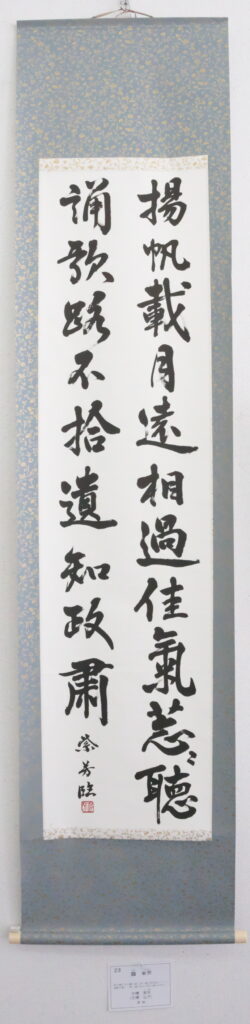 揚帆載月遠相過佳氣葱〻聽
誦歌路不拾遺知政肅
芳臨